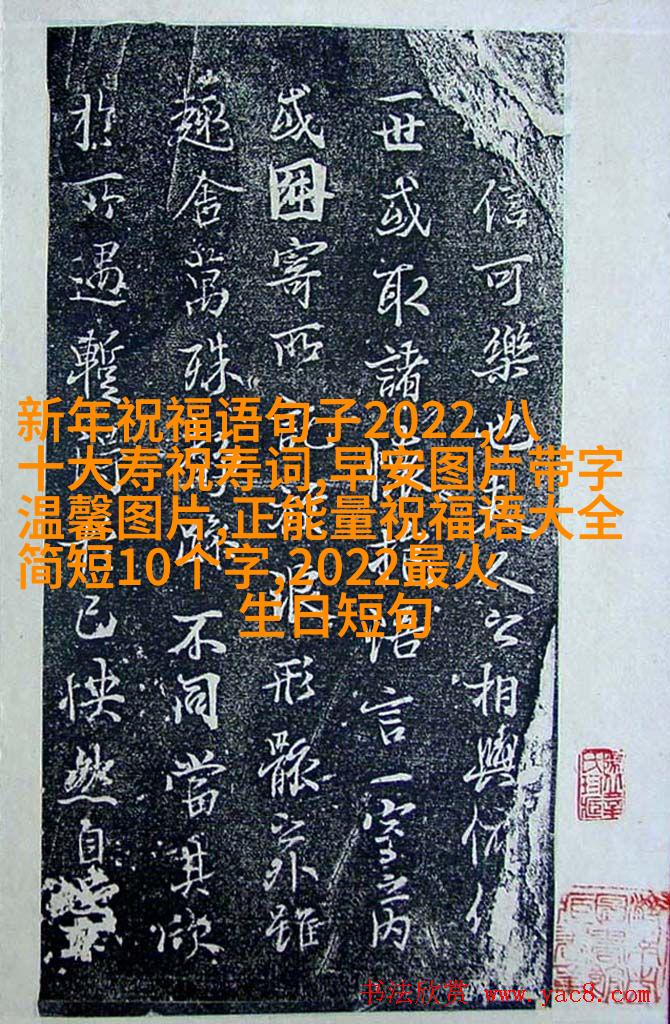 信可樂也人之相與俯仰
一世或取諸悟言一室之內
或因寄所形骸之外雖
趣舍萬殊不同當其欣
於所遇暫己快然自
新年祝福语句子2022,八
十大寿祝寿词,早安图片带字
温馨图片,正能量祝福语大全
简短10个字,2022最火
生日短句
书法欣赏 www.yac8.com